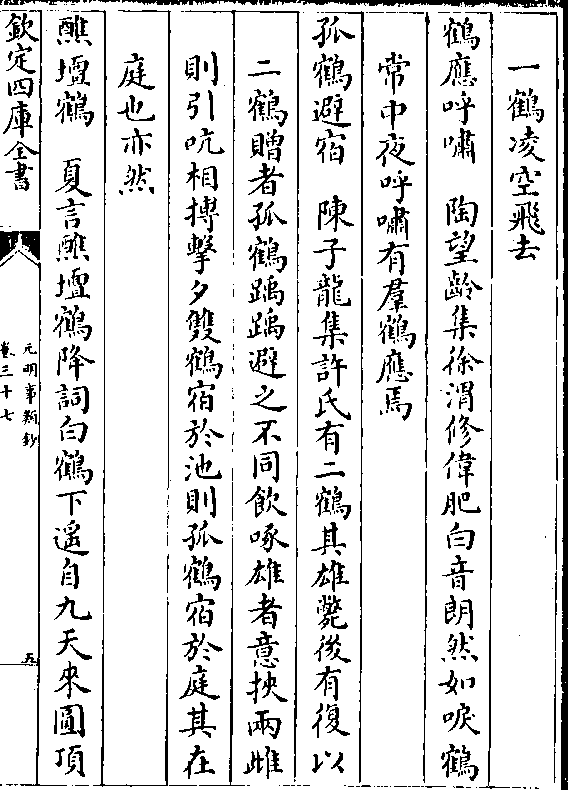 一鶴凌空飛去
鶴應呼嘯　陶望齡集徐渭修偉肥白音朗然如唳鶴
常中夜呼嘯有羣鶴應焉
孤鶴避宿　陳子龍集許氏有二鶴其雄斃後有復以
二鶴贈者孤鶴踽踽避之不同飲啄雄者意挾兩雌
則引吭相搏擊夕雙鶴宿於池則孤鶴宿於庭其在
庭也亦然
醮壇鶴　夏言醮壇鶴降詞白鶴下遥自九天來圓頂
欽定四庫全書
元明事類鈔
卷三十七
五